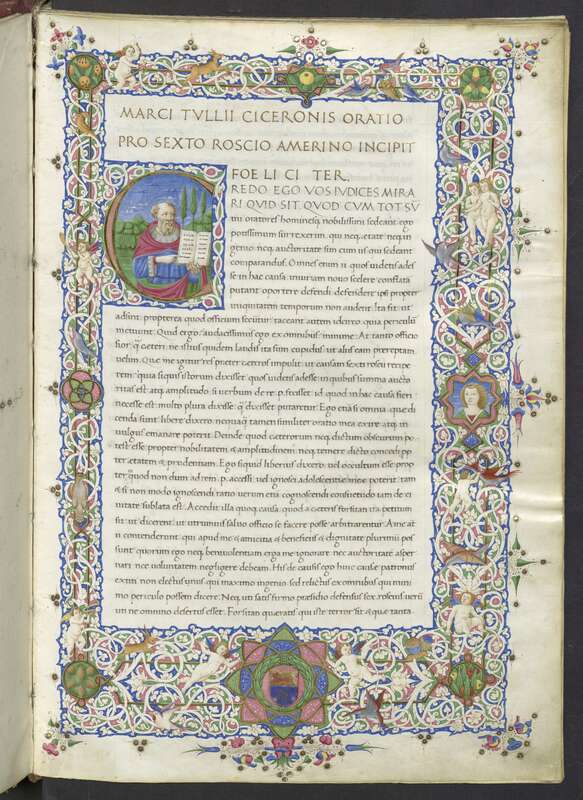 MARCI TVLLII CICERONIS ORATIO
PRO SEXTO ROSCIO AMERINO INCIPIT
FOE LI CI TER.
CREDO EGO VOS IVDICES MIRA
RI QVID SIT. QVOD CVM TOT SV̄
mi oratores hominesq. nobilissimi sedeant. ego
potissimum surrexerim. qui neq. etate neq. in
genio neq. auctoritate sim cum iis qui sedeant
comparandus. Omnes enim ii quos uidetis ades
se in hac causa. iniuriam nouo scelere conflata
putant oportere defendi. defendere ipsi propter
iniquitatem temporum non audent. Ita fit ut
adsint propterea quod officium secuntur. taceant autem idcirco quia periculū
metuunt. Quid ergo audacissimus ego ex omnibus? minime. At tanto officio
sior q̄ ceteri. ne istius quidem laudis ita sum cupidus ut aliis eam prereptam
uelim. Que me igitur res preter ceteros impulit ut causam sexti roscii recipe
rem? quia siquis istorum dixisset quos uidetis adesse in quibus summa aucto
ritas est atq. amplitudo. si uerbum de re .p. fecisset id quod in hac causa fieri
necesse est multo plura dixisse q̄ dixisset putaretur. Ego etiā si omnia que di
cenda sunt libere dixero nequaq̄ tamen similiter oratio mea exire atq. in
uulgus emanare poterit. Deinde quod ceterorum neq. dictum obscurum po
test esse propter nobilitatem & amplitudinem neq. temere dicto concedi pp
ter etatem & prudentiam. Ego siquid liberius dixero uel occultum esse prop
ter quod non dum ad rem .p. accessi uel ignosci adolescentie mee poterit. tam
& si non modo ignoscendi ratio uerum etiā cognoscendi consuetudo iam de ci
uitate sublata est. Accedit illa quoq. causa quod a ceteris forsitan ita petitum
sit ut dicerent ut utrumuis saluo officio se facere posse arbitrarentur. A me at
ii contenderunt qui apud me & amicitia & beneficiis & dignitate plurimū pos
sunt quorum ego neq. beniuolentiam erga me ignorare nec auctoritatē asper
nari nec uoluntatem negligere debeam. His de causis ego huic cause patronus
extiti non electus unus qui maximo ingenio sed relictus ex omnibus qui mini
mo periculo possem dicere. Neq. uti satis firmo presidio defensus sex. roscius uerū
uti ne omnino desertus esset. Forsitan queratis qui iste terror sit & que tanta